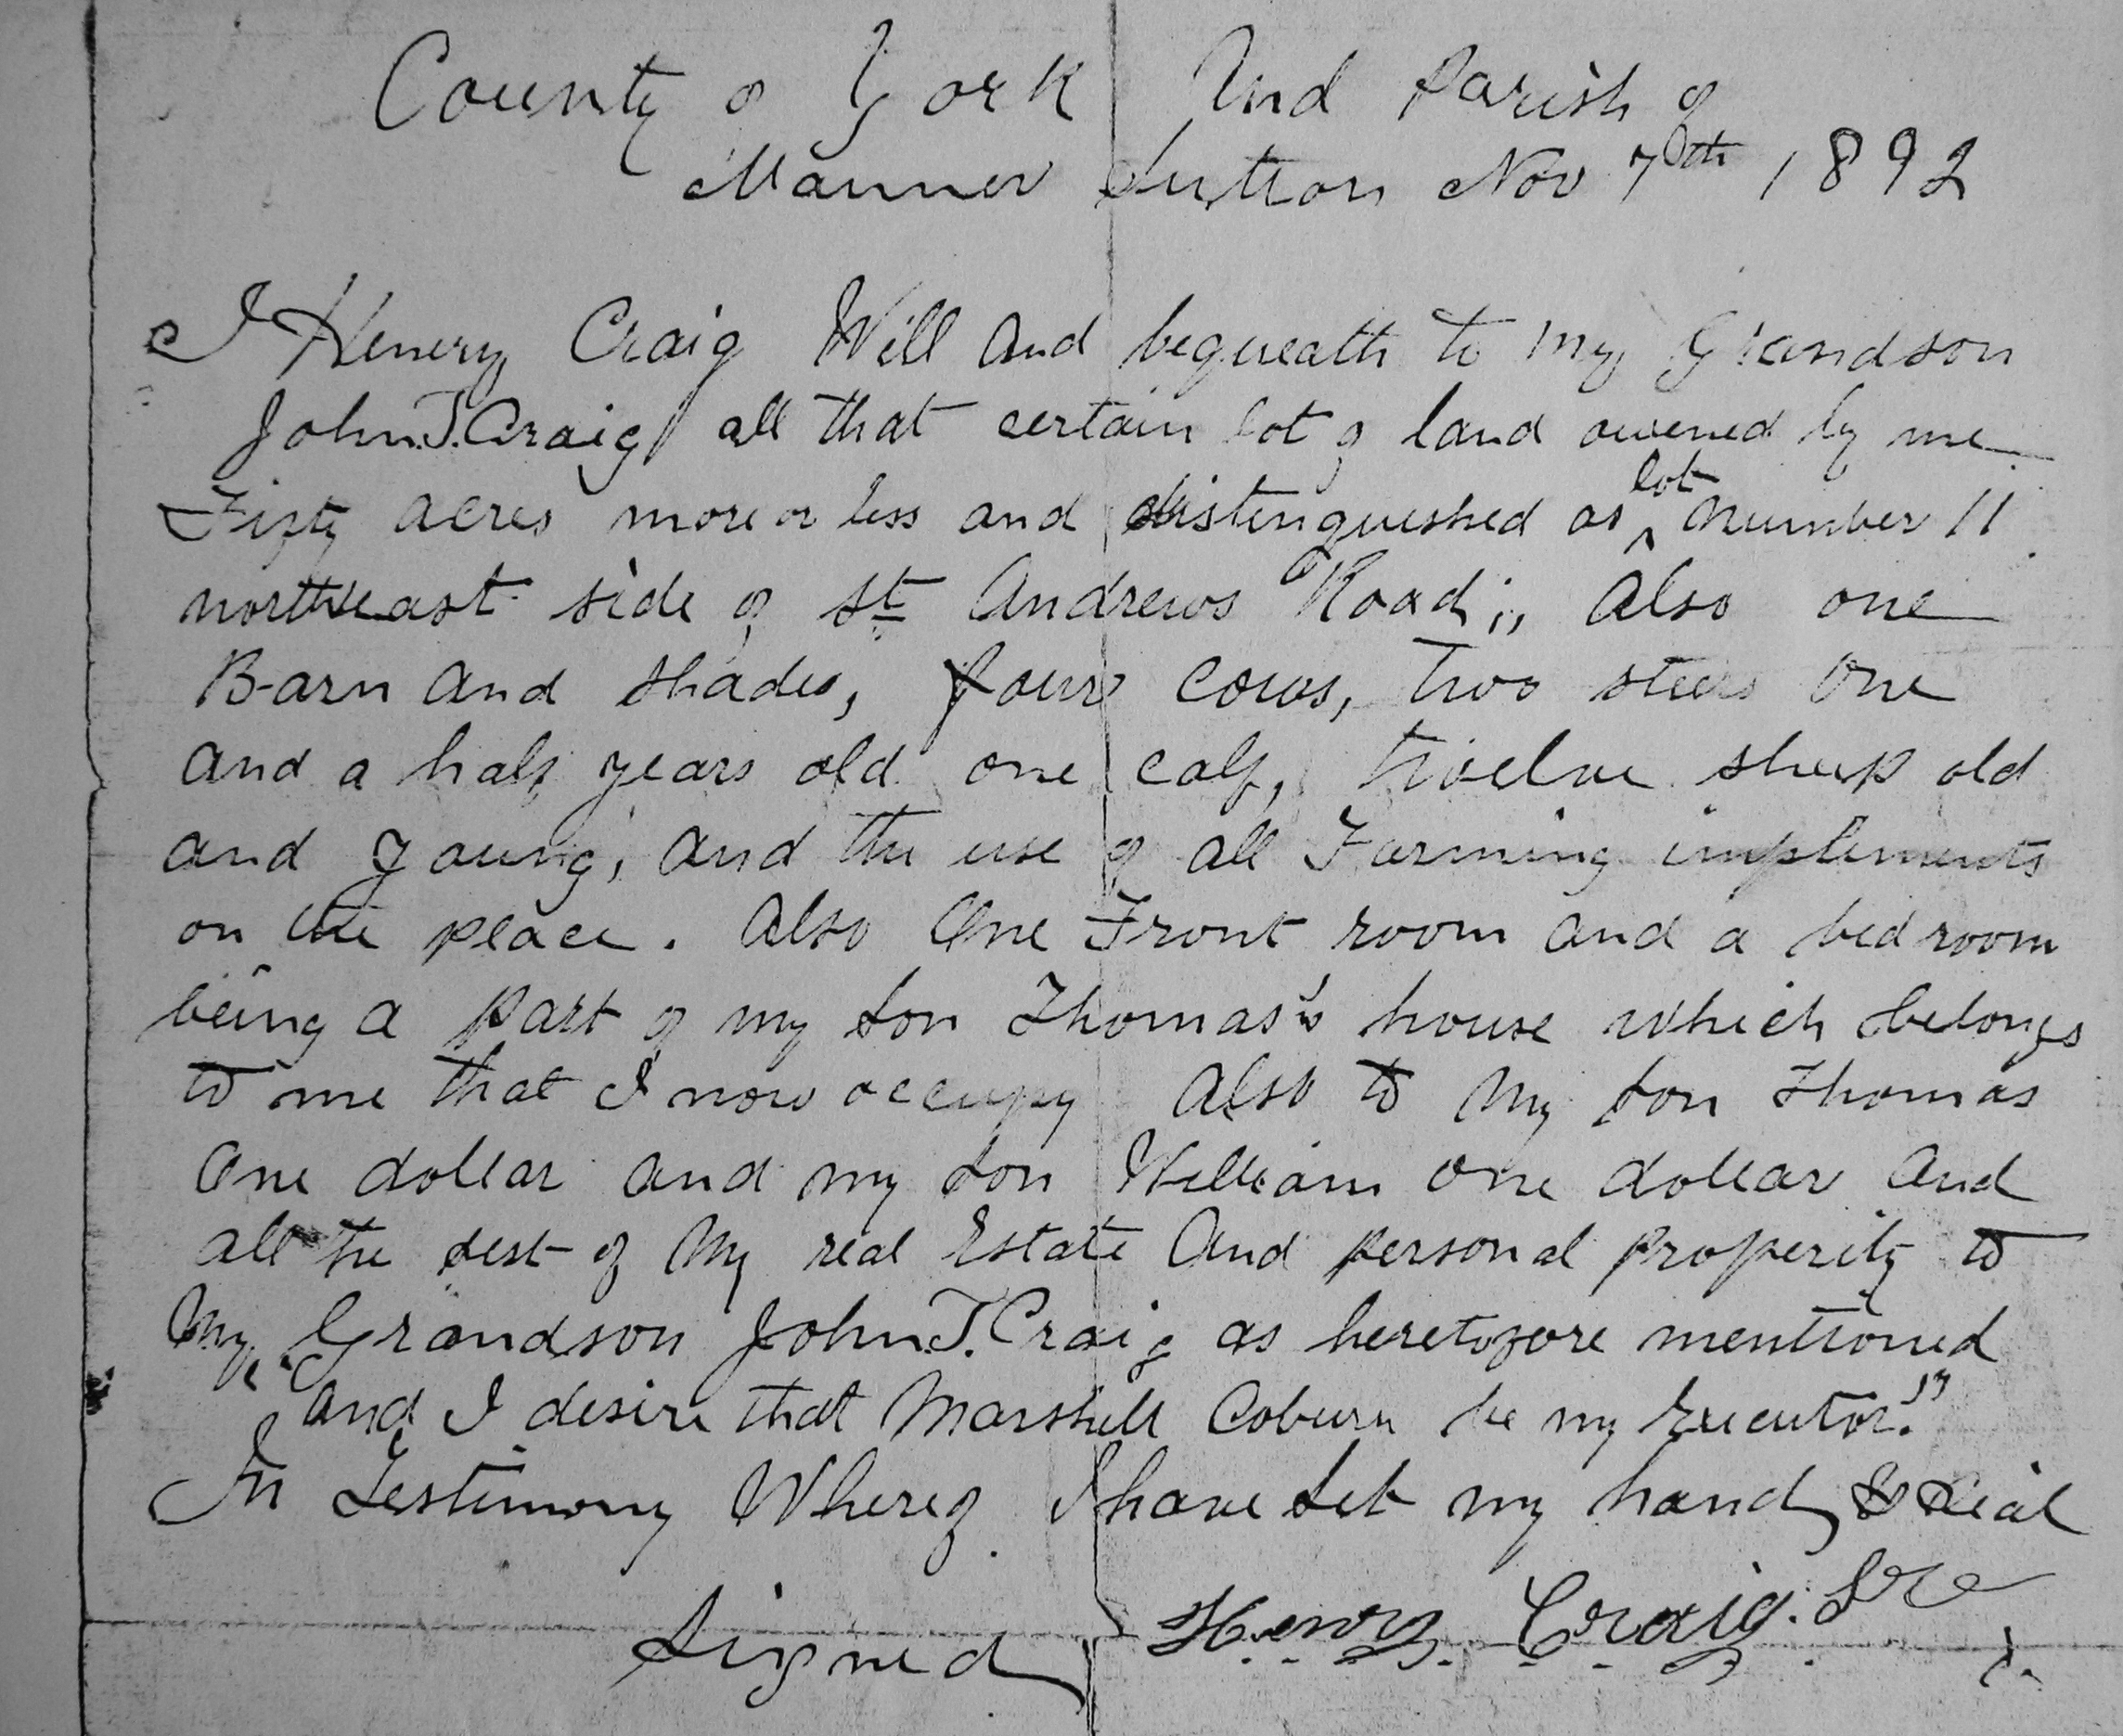 County of York And Parish of
Manner Sutton Nov 7th 1892
I Henery Craig Will And bequeath to My Grandson
John.T.Craig all that certain lot of land owened by me
Fifty acres more or less and distenguished as lot Number 11
northeast side of St Andrews Road;, Also one
Barn and Shades, four cows, Two steers One
and a half years old one calf, twelve sheep old
and young, And the use of all Farming implements
on the place. Also One Front room and a bed room
being a part of my Son Thomas's house which belongs
to me that I now occupy Also to My Son Thomas
One dollar and my Son William One dollar And
all the rest of My real Estate And personal properity to
My Grandson John.T.Craig as heretofore mentioned
"And I desire that Marshell Coburn be my Executor."
In Testimony Whereof I have Set my hand & Seal
Signed Henry Craig. Sre